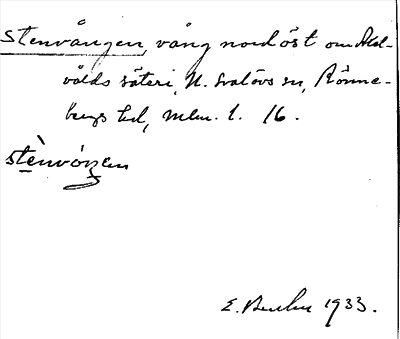 Stenvången, vång nordöst om Axel-
völds säteri, N. Svalövs sn, Rönne-
bergs hd, mln. l. 16.
stènvóngen
E. 1933.